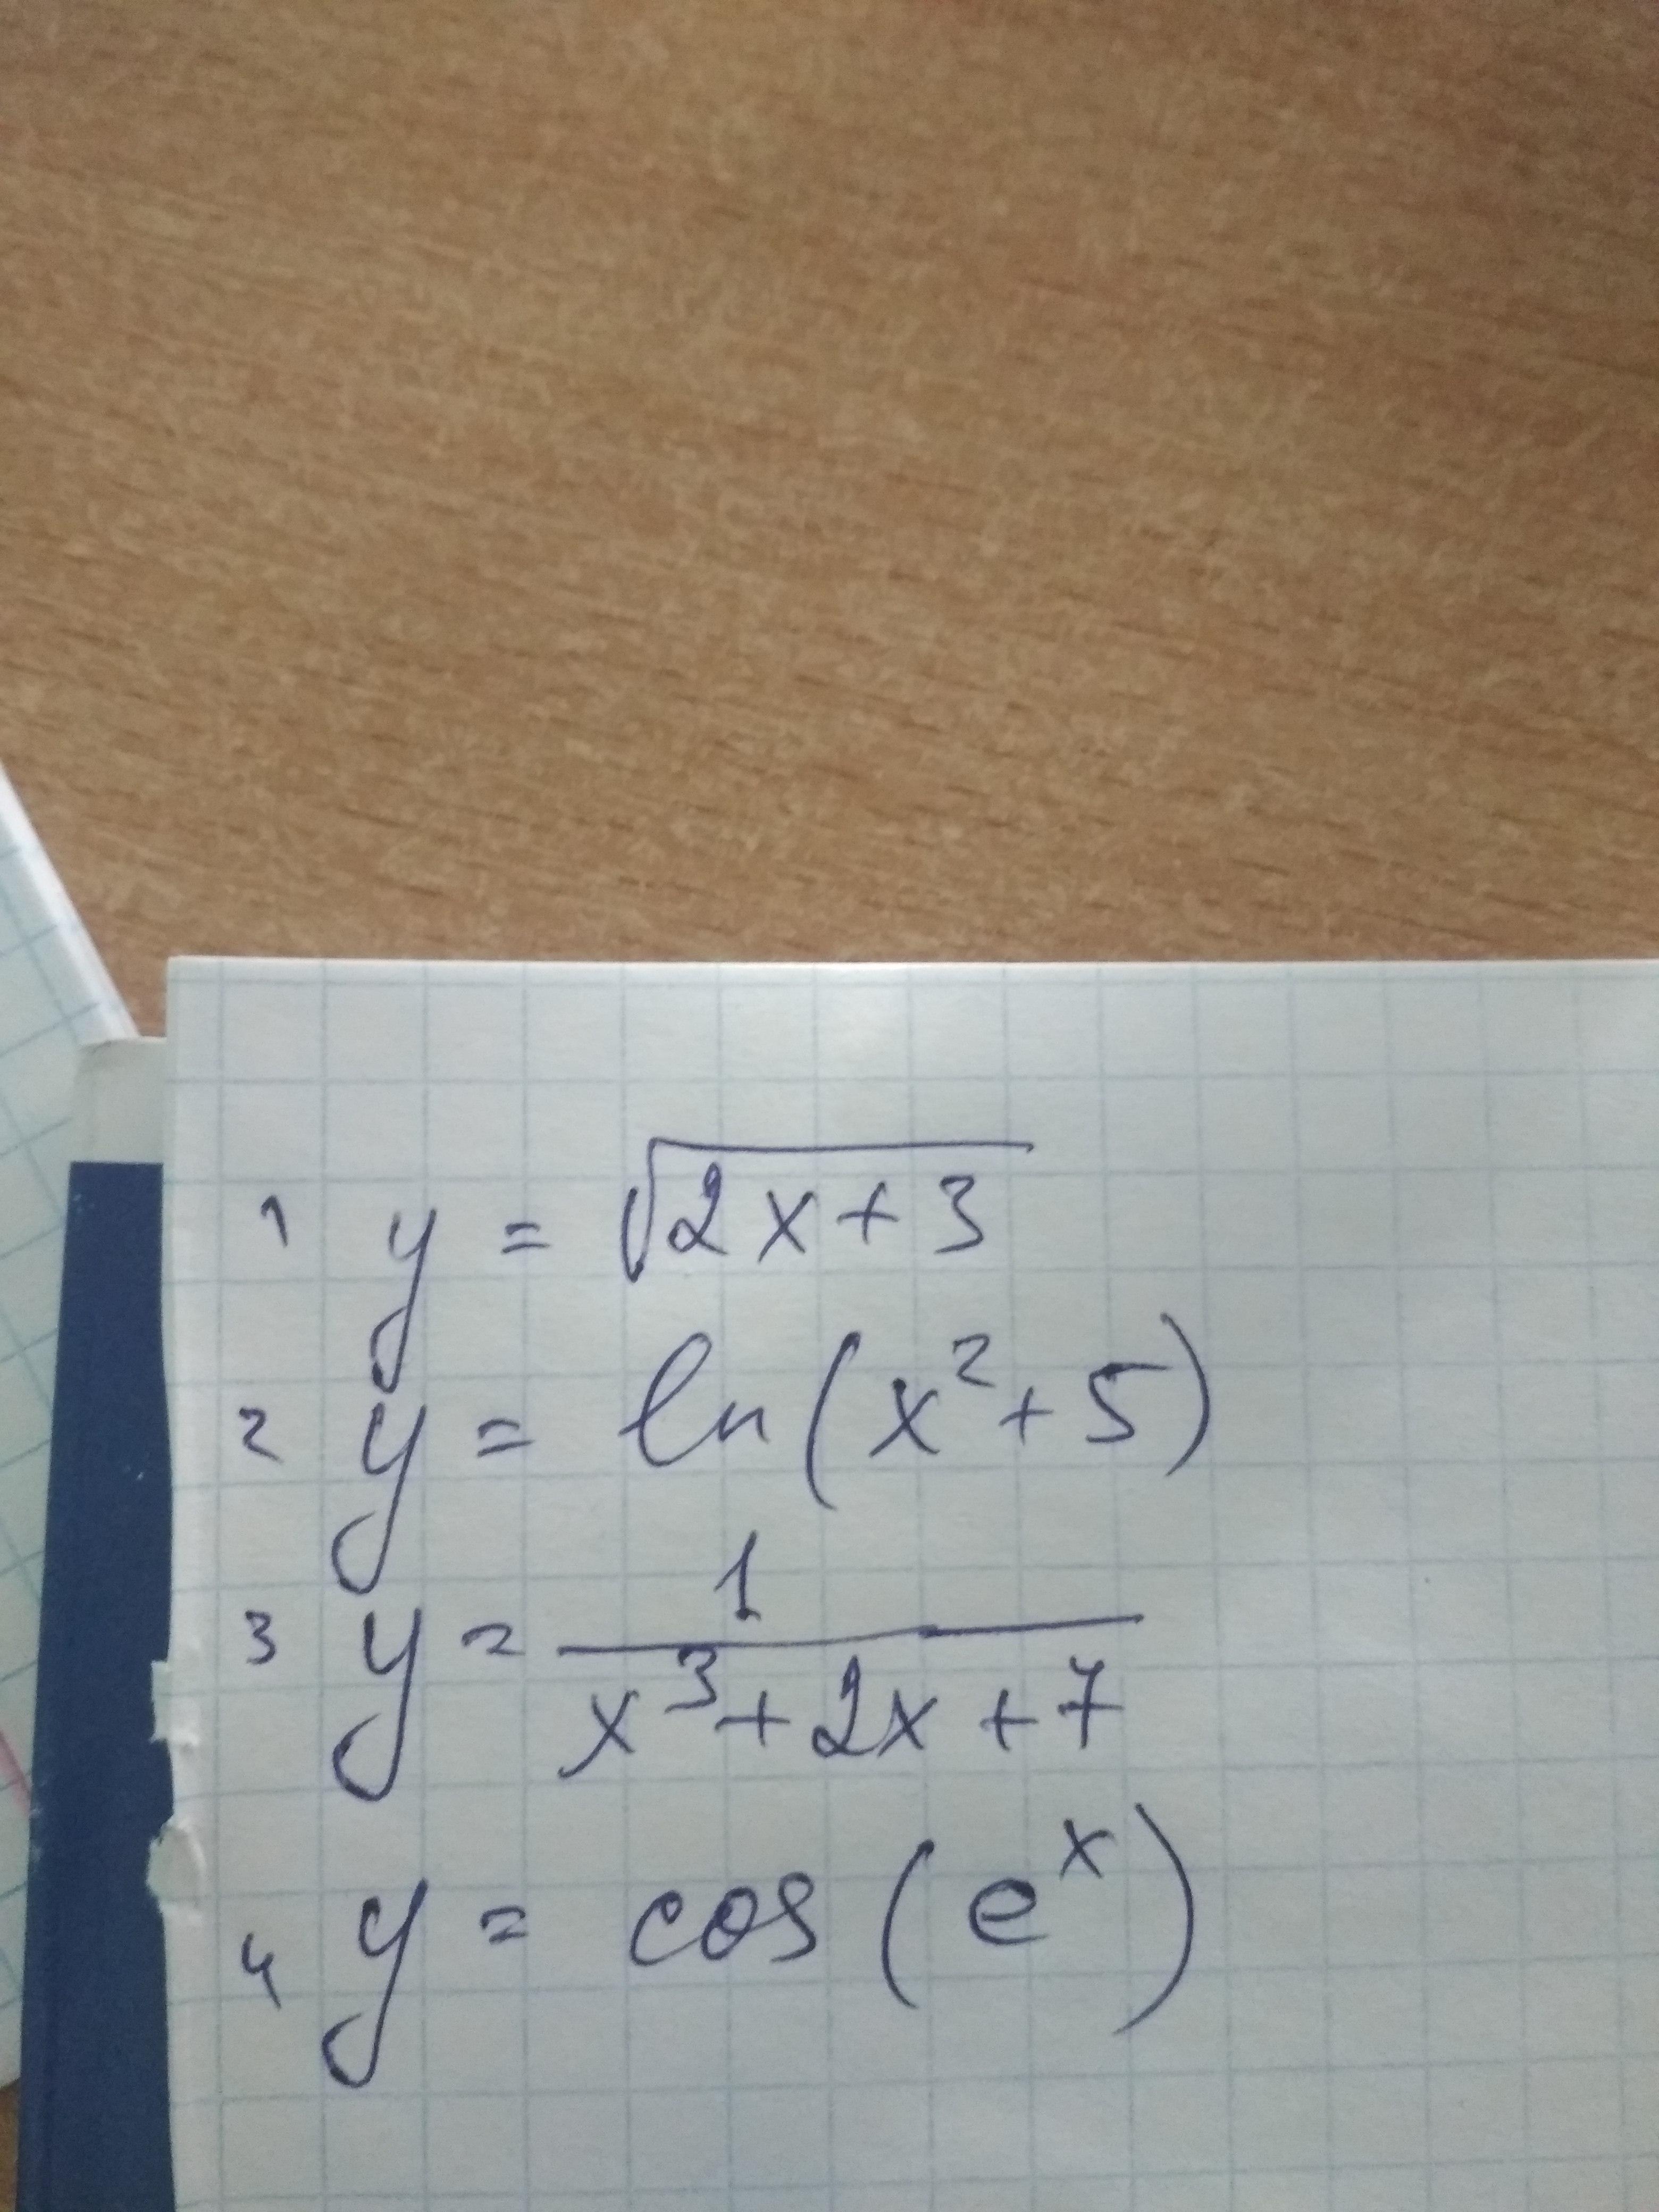 1 y = √(2x+3)
2 y = ln(x²+5)
3 y = 1/(x³+2x+7)
4 y = cos(eˣ)